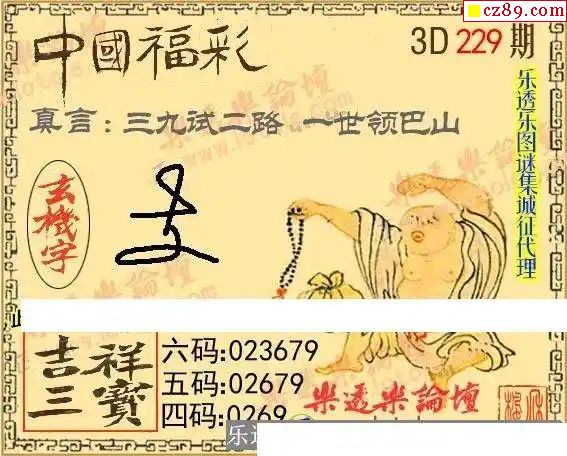 cz89.com
中國福彩
3D 229 期
真言：三九试二路 一世领巴山
乐透乐图谜集城征代理
玄機字
吉祥三寶
六码:023679
五码:02679
四码:0269
樂透樂論壇